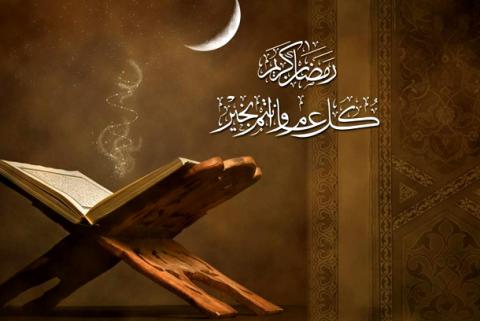 رمضان كريم
كل عام وانتم بخير